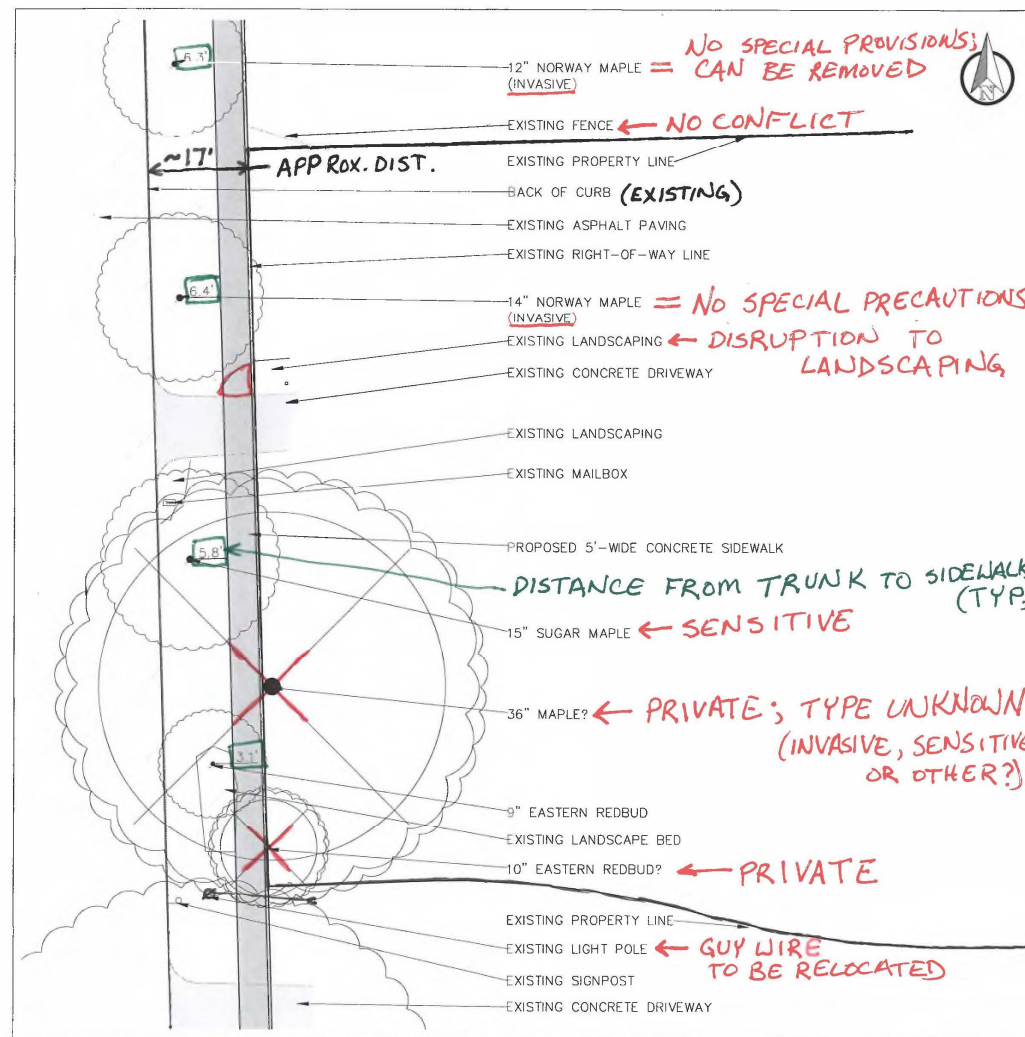 6.3'
12" NORWAY MAPLE = NO SPECIAL PROVISIONS;
(INVASIVE) CAN BE REMOVED
N
EXISTING FENCE ← NO CONFLICT
~17' APPROX. DIST.
EXISTING PROPERTY LINE
BACK OF CURB (EXISTING)
EXISTING ASPHALT PAVING
EXISTING RIGHT-OF-WAY LINE
6.4'
14" NORWAY MAPLE = NO SPECIAL PRECAUTIONS
(INVASIVE)
EXISTING LANDSCAPING ← DISRUPTION TO
LANDSCAPING
EXISTING CONCRETE DRIVEWAY
EXISTING LANDSCAPING
EXISTING MAILBOX
PROPOSED 5'-WIDE CONCRETE SIDEWALK
5.8'
DISTANCE FROM TRUNK TO SIDEWALK
(TYP.
15" SUGAR MAPLE ← SENSITIVE
36" MAPLE? ← PRIVATE; TYPE UNKNOWN
(INVASIVE, SENSITIVE
OR OTHER?)
9" EASTERN REDBUD
EXISTING LANDSCAPE BED
10" EASTERN REDBUD? ← PRIVATE
EXISTING PROPERTY LINE
EXISTING LIGHT POLE ← GUY WIRE
TO BE RELOCATED
EXISTING SIGNPOST
EXISTING CONCRETE DRIVEWAY